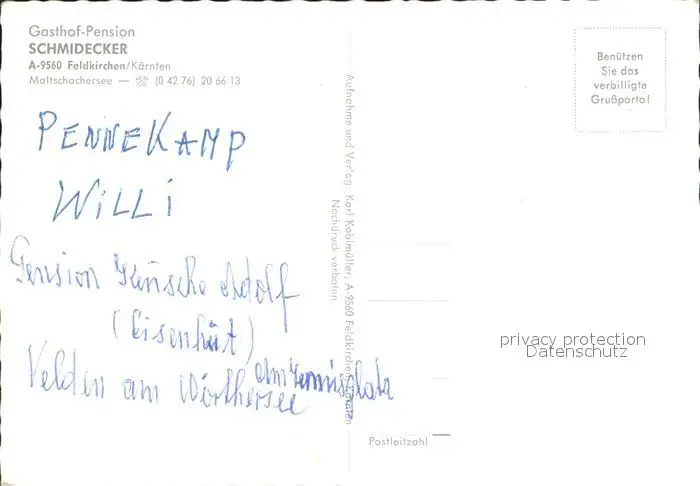 Gasthof-Pension
SCHMIDECKER
A-9560 Feldkirchen/Kärnten
Maltschachersee — ☏ (0 42 76) 20 66-13
PENNEKAMP
WiLLi
Pension Adolf
(Eisenhüt)
am Tennisplatz
Velden am Wörthersee
Aufnahme und Verlag: Karl Koblmüller, A-9560 Feldkirchen/Kärnten
Nachdruck verboten
Benützen
Sie das
verbilligte
Grußporto!
privacy protection
Datenschutz
Postleitzahl